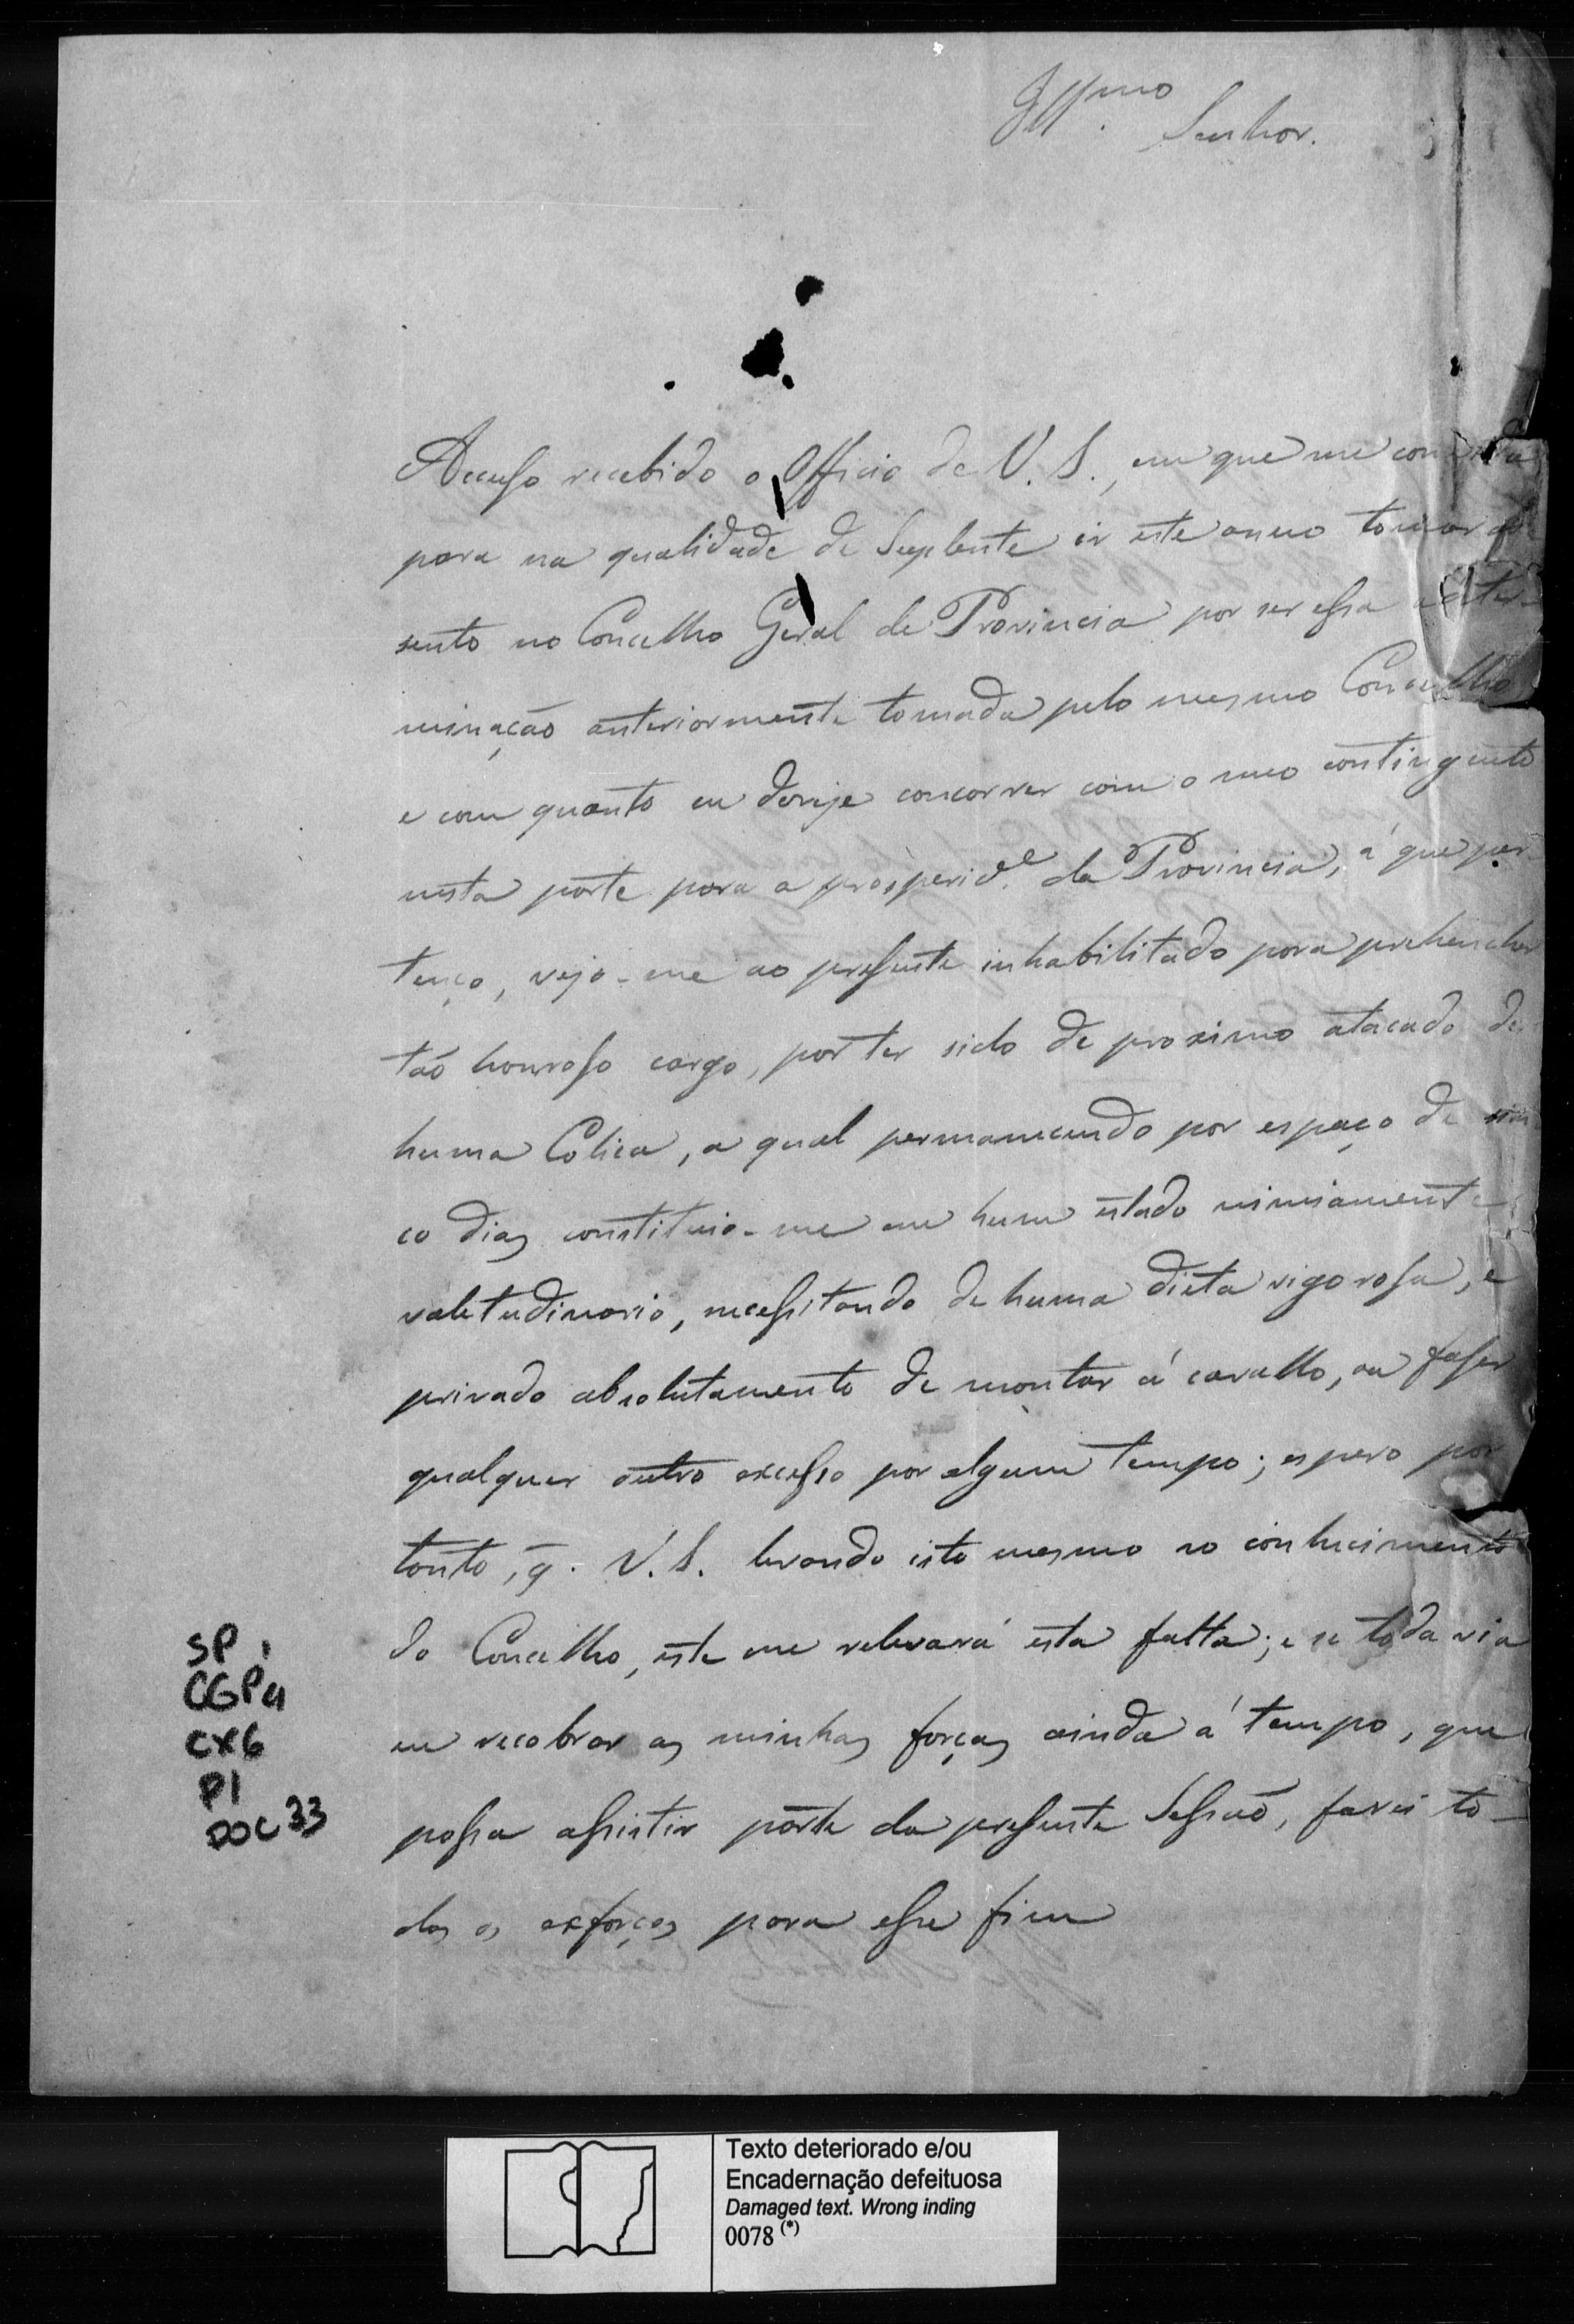 Illmo. Senhor.
Accuso recebido o Officio de V. S., em que me convida
para na qualidade de Suplente ir este anno tomar as-
sento no Concelho Geral de Provincia por ser essa a deter-
minação anteriormente tomada pelo mesmo Concelho
e com quanto eu deseje concorrer com o meo contingente
nesta parte para a prosperide. da Provincia, á que per-
tenço, vejo-me ao presente inhabilitado para prehencher
tão honroso cargo, por ter sido de proximo atacado de
huma Colica, a qual permanecendo por espaço de sin
co dias constituio-me em hum estado nimiamente
valetudinario, necessitando de huma dieta rigorosa, e
privado absolutamente de montar á cavallo, ou faser
qualquer outro excesso por algum tempo; espero por
tanto, q. V. S. levando isto mesmo ao conhecimento
do Concelho, este me relevará esta falta; e se toda via
eu recobrar as minhas forças ainda á tempo, que
possa assistir parte da presente Sessão, farei to-
dos os exforços para esse fim
SP,
CGP4
CX6
P1
DOC 33
Texto deteriorado e/ou
Encadernação defeituosa
Damaged text. Wrong inding
0078 (*)